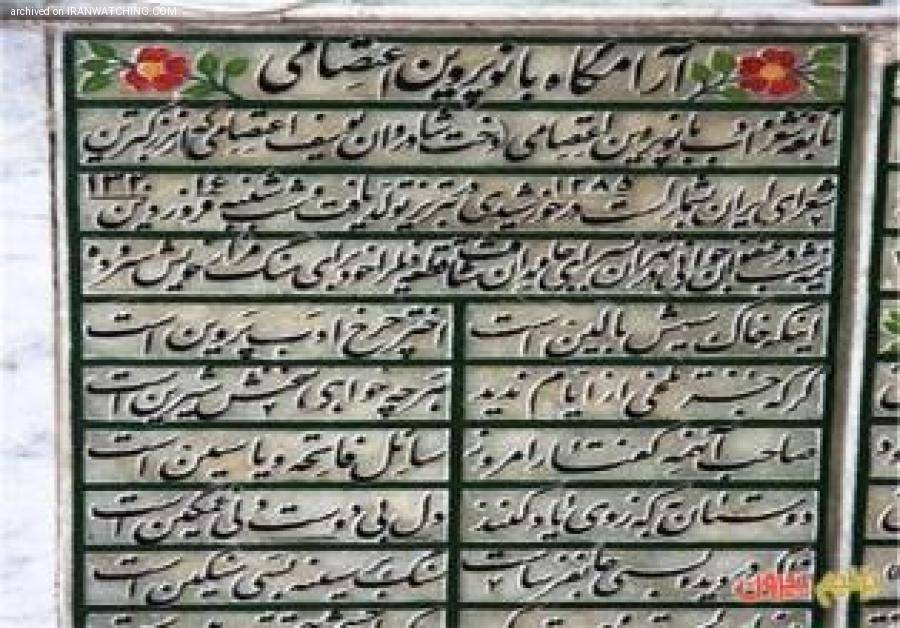 archived on IRANWATCHING.COM
آرامگاه بانو پروین اعتصامی
نابغه شعر و ادب بانو پروین اعتصامی دخت شادروان یوسف اعتصامی که از بزرگترین
شعرای ایران بشمار است در ۱۲۸۵ خورشیدی در تبریز تولد یافت شب شنبه ۱۶ فروردین ۱۳۲۰
نیمه شب در عنفوان جوانی در تهران بسرای جاویدان شتافت قطعه زیر را خود برای سنگ مزار خویش سروده
اینکه خاک سیهش بالین است اختر چرخ ادب پروین است
گرچه جز تلخی از ایام ندید هر چه خواهی سخنش شیرین است
صاحب آنهمه گفتار امروز سائل فاتحه و یاسین است
دوستان به که ز وی یاد کنند دل بی دوست دلی غمگین است
خاک در دیده بسی جانفرساست سنگ بر سینه بسی سنگین است